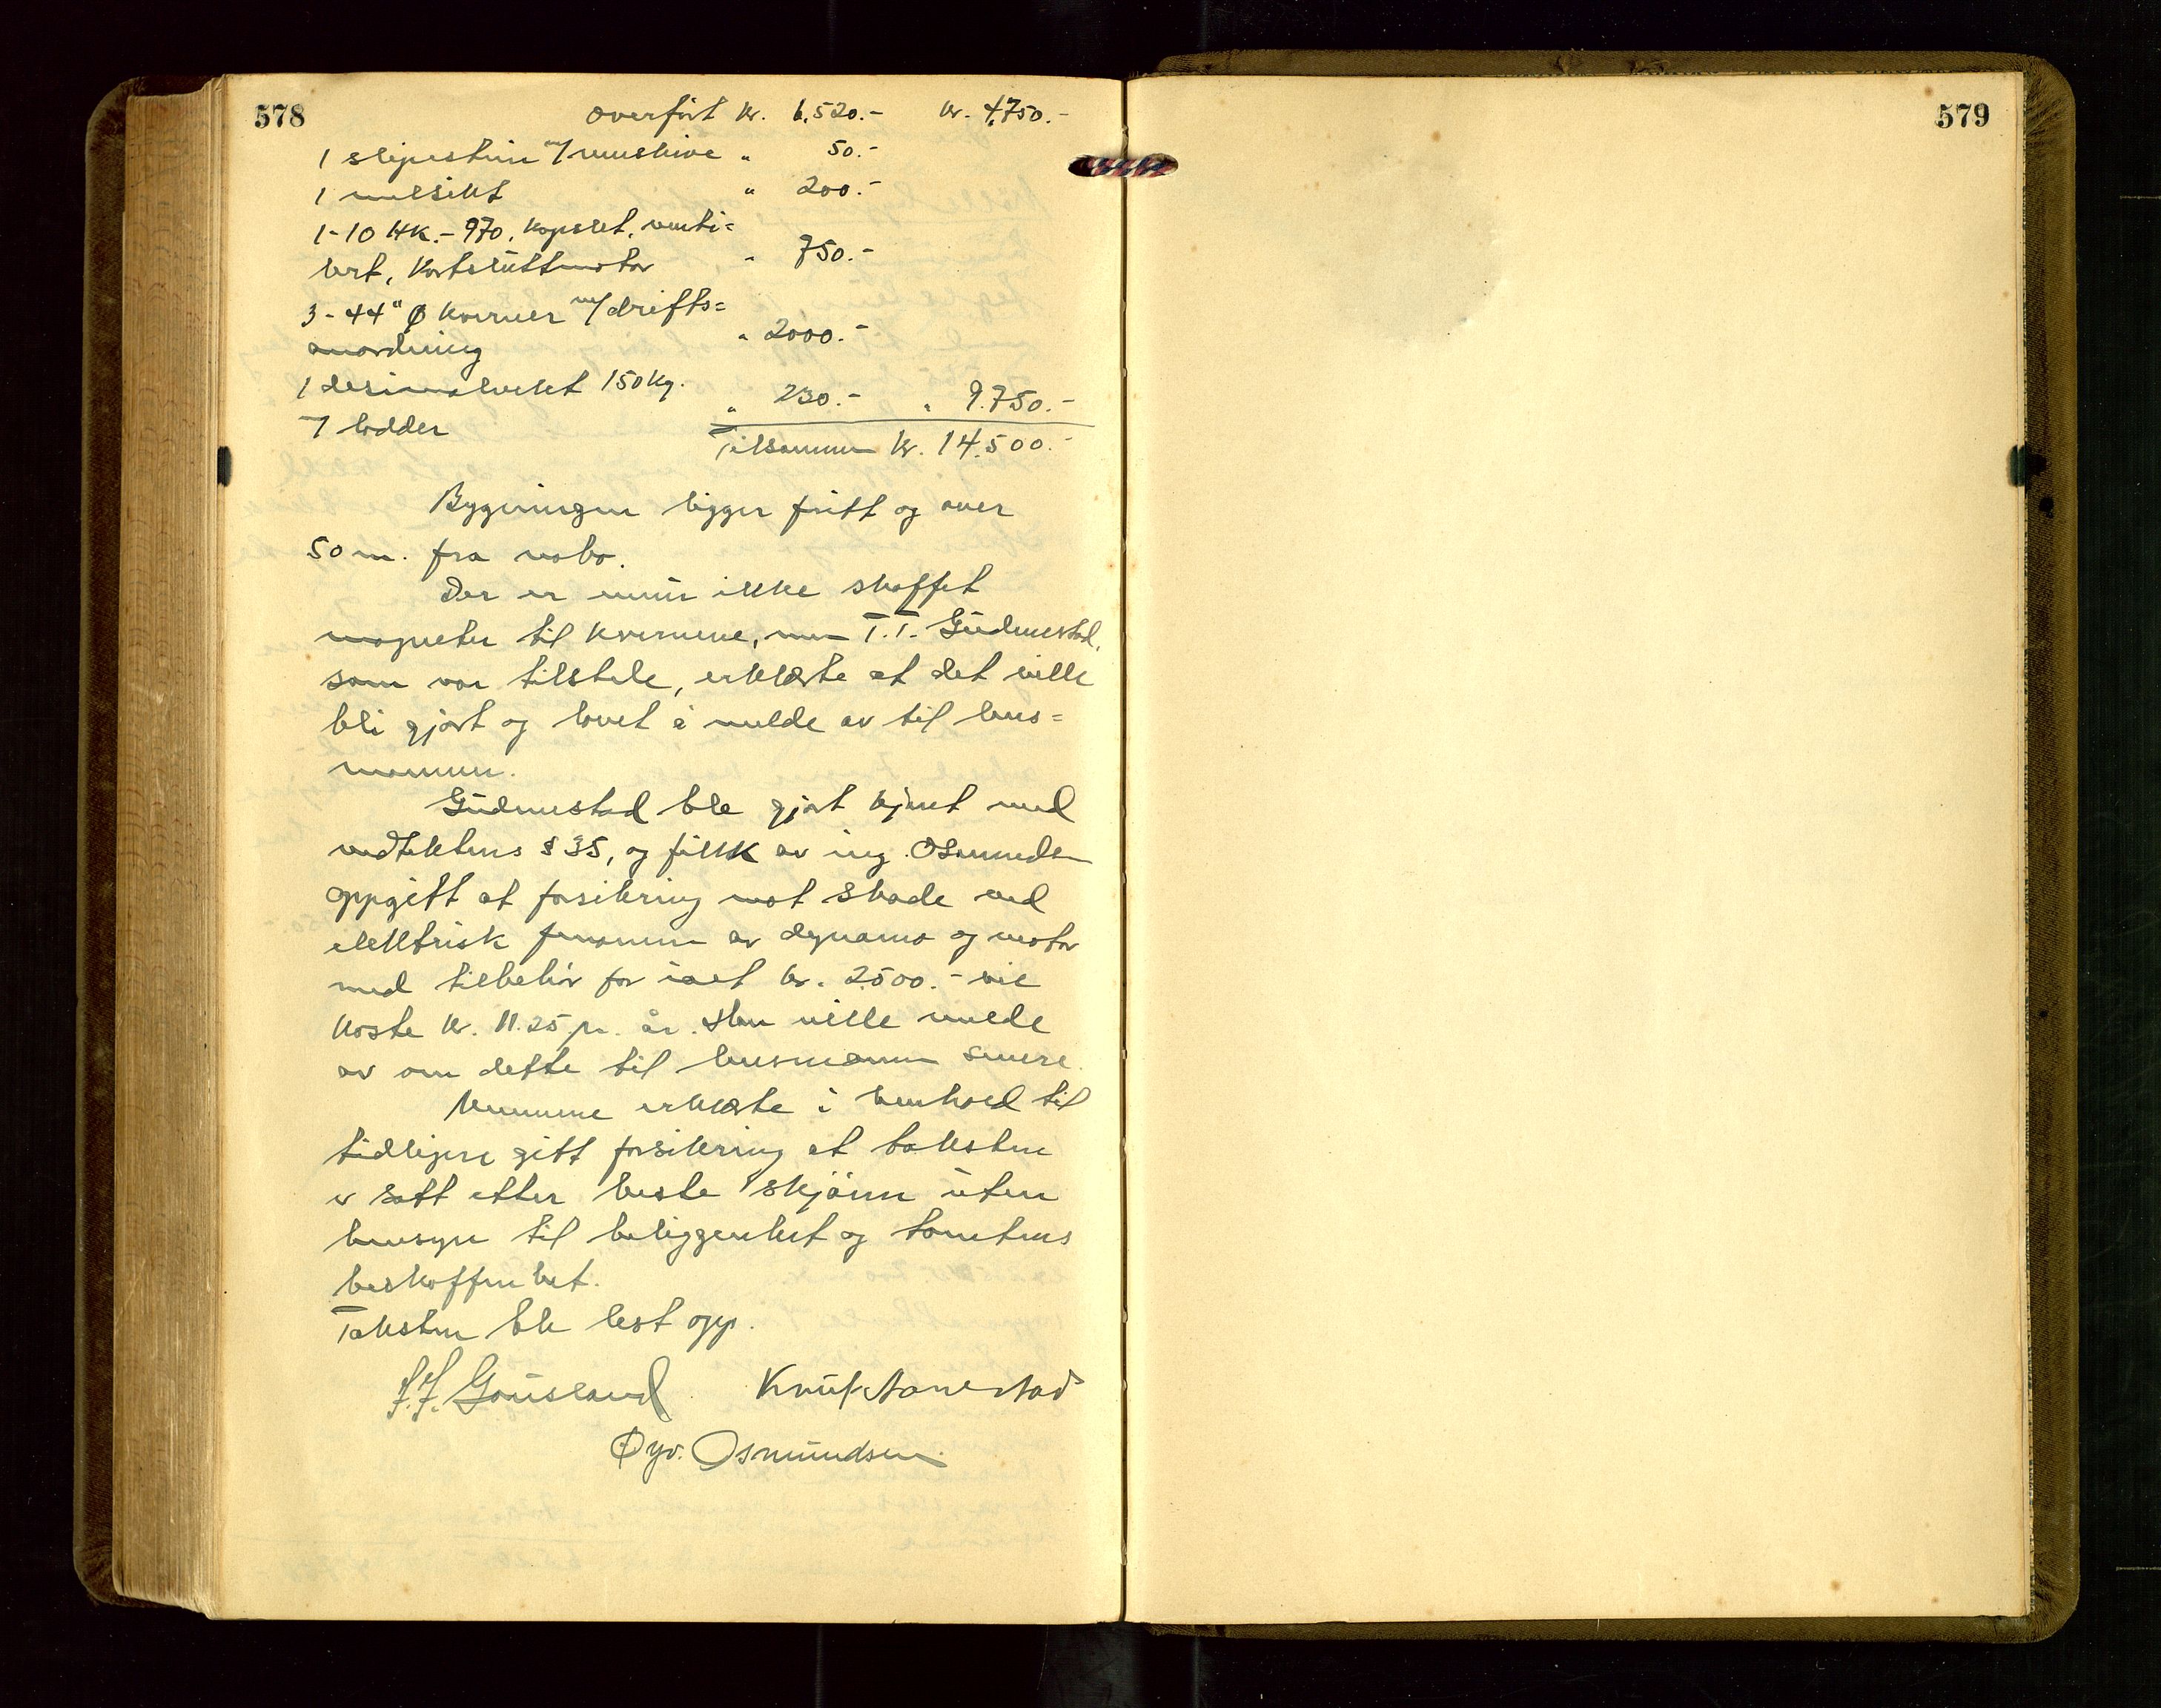 578
overført kr. 6.520.- kr. 4.750.-
1 slipestein m/remskive " 50.-
1 melsikt " 200.-
1-10 HK.- 970, kapslet, venti=
lert, Kortsluttmotor " 750.-
3-44" Ø kverner m/drifts=
anordning " 2000.-
1 desimalvekt 150 kg.
7 lodder " 230.- " 9.750.-
Tilsammen kr. 14.500.-
Bygningen ligger fritt og over
50 m. fra nabo.
Der er ennu ikke skaffet
magneter til kvernene, men T.T. Gudmestad,
som var tilstede, erklærte at det ville
bli gjort og lovet å melde av til lens=
mannen.
Gudmestad ble gjort kjent med
vedtektens § 35, og fikk av ing. Osmundsen
oppgitt at forsikring mot skade ved
elektrisk fenomen av dynamo og motor
med tilbehør for ialt kr. 2500.- vil
koste kr. 11.25 pr. år. Han ville melde
av om dette til lensmannen senere.
Mennene erklærte i henhold til
tidligere gitt forsikring at taksten
er satt etter beste skjønn uten
hensyn til beliggenhet og tomtens
beskaffenhet.
Taksten ble lest opp.
J. J. Gausland Knut Aanestad
Øyv. Osmundsen
579